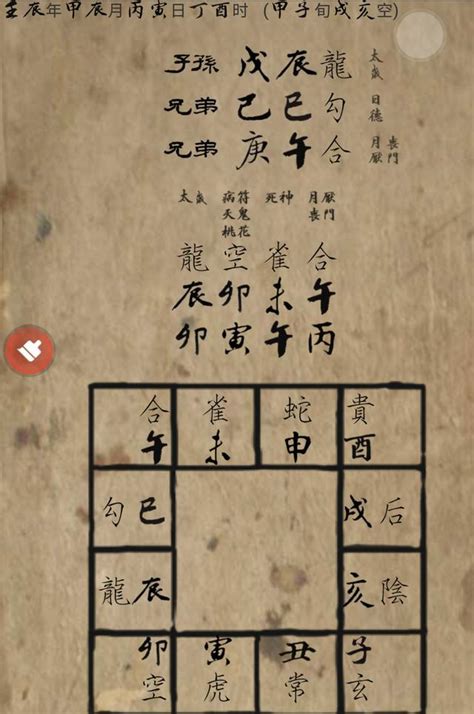 壬辰年甲辰月丙寅日丁酉时 (甲子旬戌亥空)
子孫 戊辰龍 太歲
兄弟 己巳勾 日德
兄弟 庚午合 月厭 喪門
太歲 病符 死神 月厭
天鬼 喪門
桃花
龍空雀合
辰卯未午
卯寅午丙
合雀蛇貴
午未申酉
勾巳 戌后
龍辰 亥陰
卯寅丑子
空虎常玄